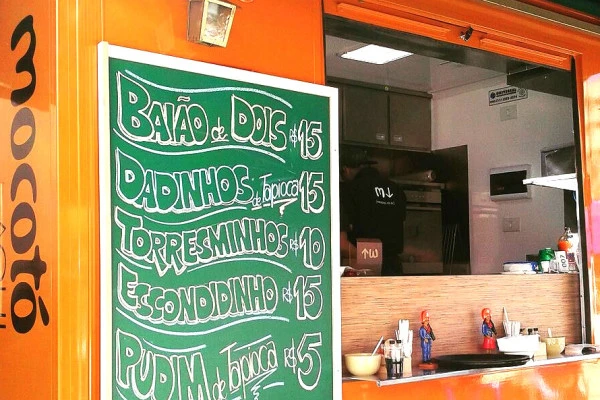 mocotó
BAIÃO de DOIS R$15
DADINHOS de Tapioca 15
TORRESMINHOS R$10
ESCONDIDINHO R$15
PUDIM de Tapioca R$5
m↓
↑w